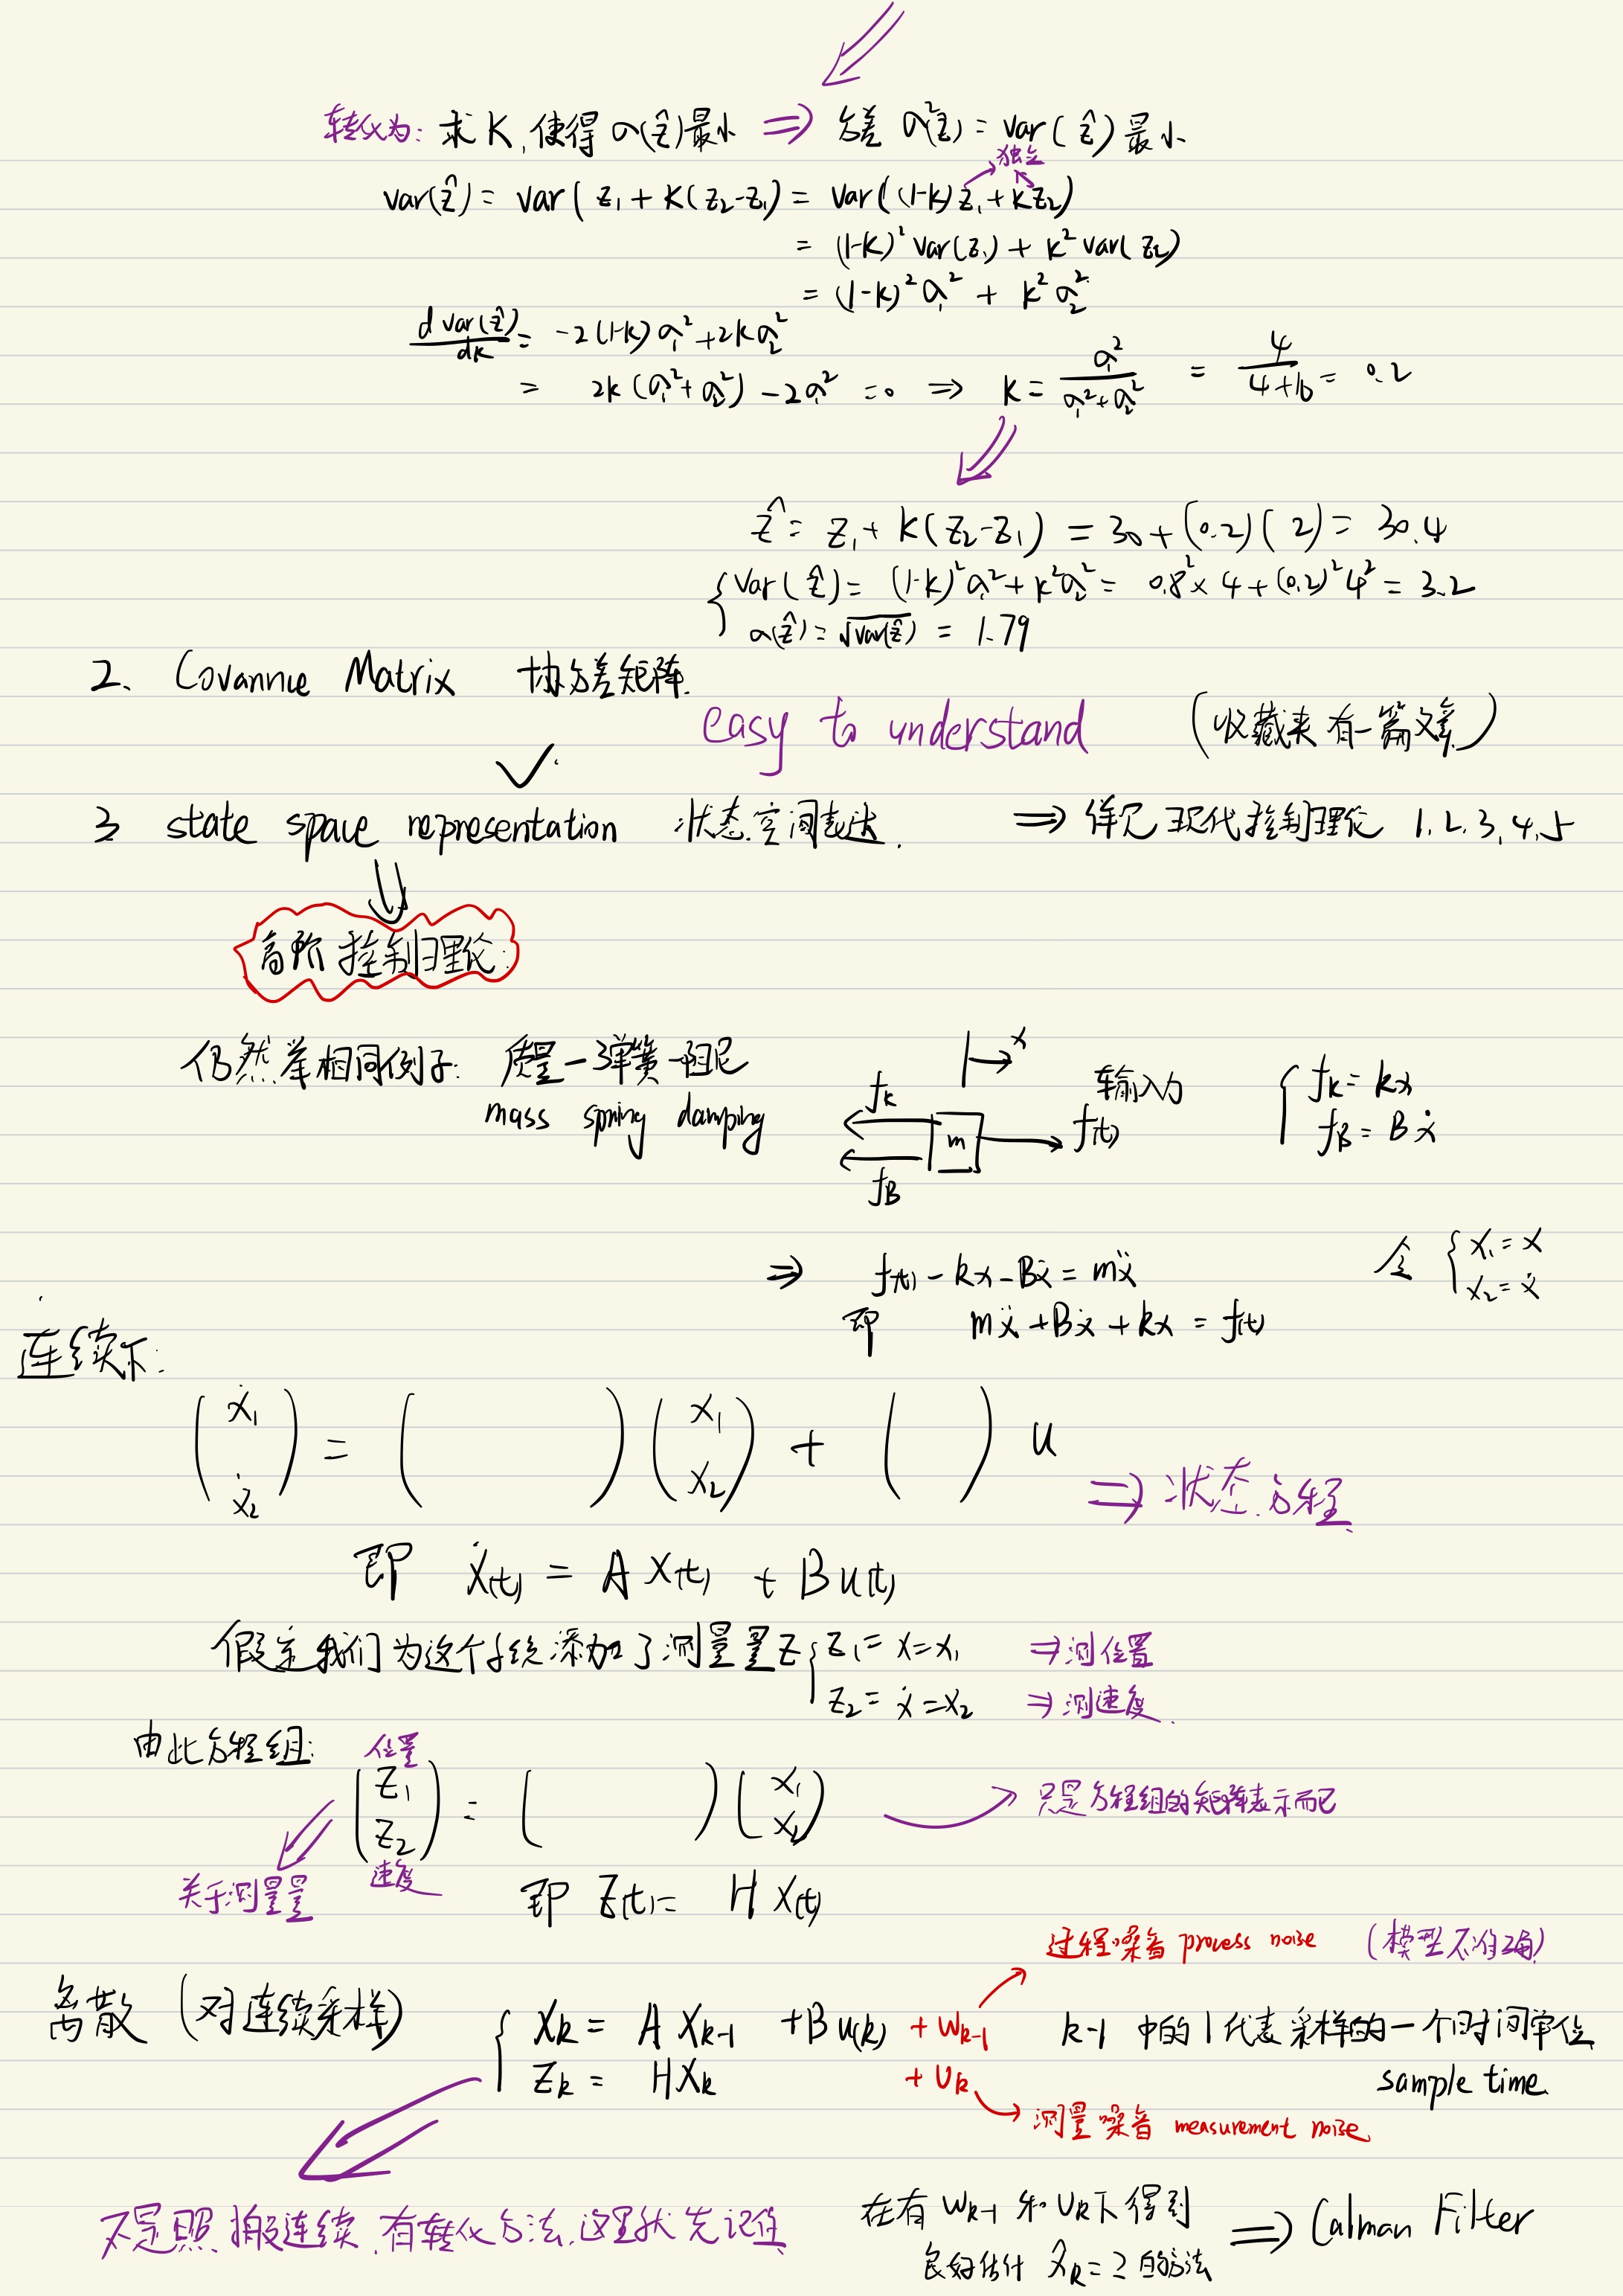 转化为: 求 K, 使得 σ(ẑ)最小 ⇒ 方差 σ²(ẑ) = var(ẑ) 最小
独立
var(ẑ) = var( z₁ + K(z₂-z₁) = var( (1-k)z₁ + kz₂)
= (1-k)² var(z₁) + k² var(z₂)
= (1-k)² σ₁² + k² σ₂²
d var(ẑ)/dk = -2(1-k)σ₁² + 2kσ₂²
= 2k(σ₁²+σ₂²) - 2σ₁² = 0 ⇒ k = σ₁²/(σ₁²+σ₂²) = 4/(4+16) = 0.2
ẑ = z₁ + k(z₂-z₁) = 30 + (0.2)(2) = 30.4
var(ẑ) = (1-k)²σ₁² + k²σ₂² = 0.8² × 4 + (0.2)²4² = 3.2
σ(ẑ) = √var(ẑ) = 1.79
2. Matrix 协方差矩阵.
easy to understand (收藏夹有一篇文章)
3 state space representation 状态空间表达. ⇒ 详见 现代控制理论 1, 2, 3, 4, 5
高阶控制理论:
仍然举相同例子: 质量-弹簧-阻尼
mass spring damping
x
fk
输入力
m
f(t)
fB
{ fk = kx
fB = Bẋ
⇒ f(t) - kx - Bẋ = mẍ
令 { x₁ = x
x₂ = ẋ
即 mẍ + Bẋ + kx = f(t)
连续下:
(ẋ₁ ẋ₂) = ( ) (x₁ x₂) + ( ) u
⇒ 状态方程
即 Ẋ(t) = A X(t) + B u(t)
假定我们为这个系统添加了测量量 Z { z₁ = x = x₁ ⇒ 测位置
z₂ = ẋ = x₂ ⇒ 测速度.
由此方程组:
位置
(z₁ z₂) = ( ) (x₁ x₂)
只是方程组的矩阵表示而已
速度
关于测量量
即 Z(t) = H X(t)
过程噪音 process noise (模型不准确)
离散 (对连续采样) { Xk = A Xk-1 + B u(k) + wk-1
k-1 中的 1 代表采样的一个时间单位
Zk = H Xk + vk
sample time
测量噪音 measurement noise
不是照搬连续, 有转化方法, 这里就先记住
在有 wk-1 和 vk下得到
良好估计 x̂k = ? 的方法
⇒ Calman Filter